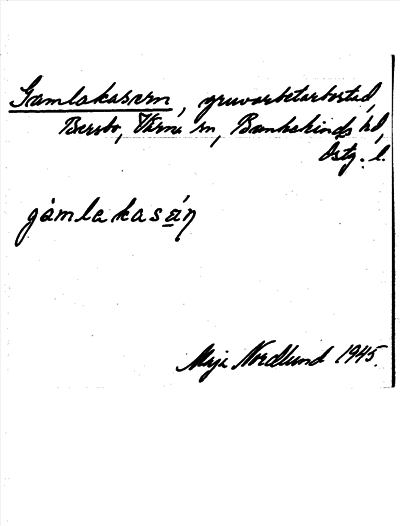 Gamlakasarn, gruvarbetarbostad,
Bersbo, Värna sn, Bankekinds hd,
Östg. l.
gàmlakasáṇ
Maja Nordlund 1945.